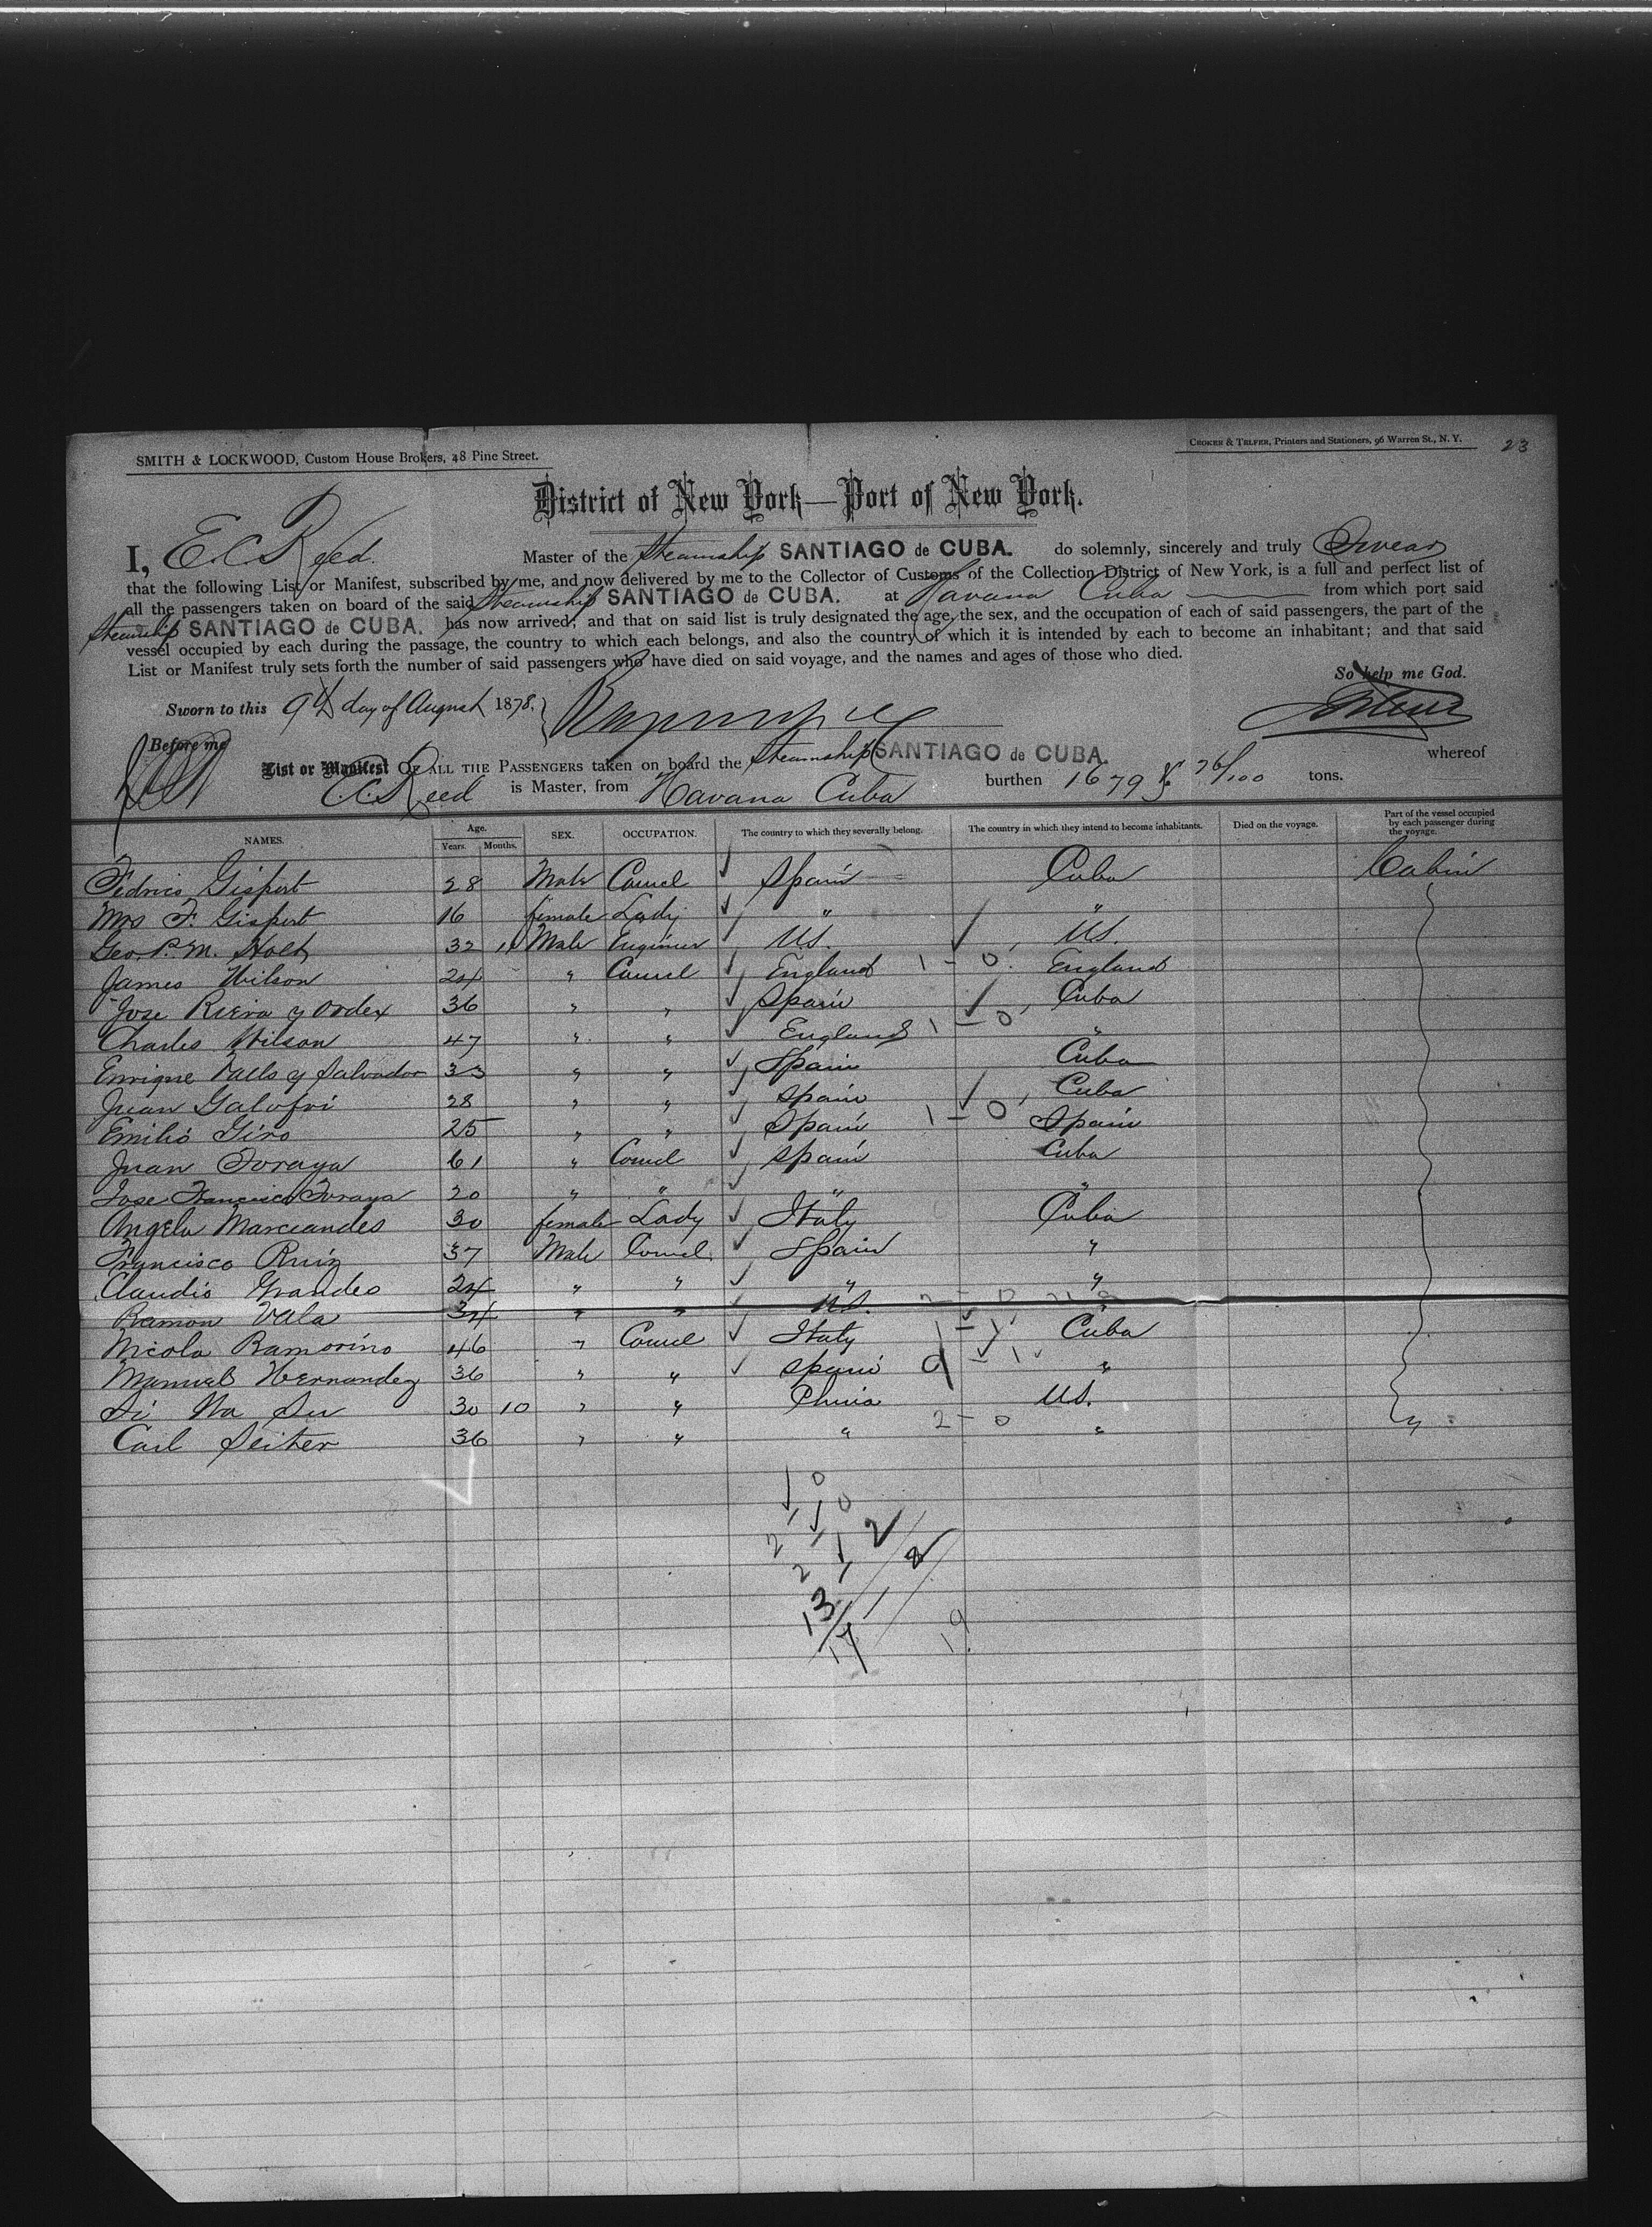 CROKER & TELFER, Printers and Stationers, 96 Warren St., N. Y. 23
SMITH & LOCKWOOD, Custom House Brokers, 48 Pine Street.
District of New York—Port of New York.
I, E. C. Reed. Master of the Steamship SANTIAGO de CUBA. do solemnly, sincerely and truly Swear
that the following List or Manifest, subscribed by me, and now delivered by me to the Collector of Customs of the Collection District of New York, is a full and perfect list of
all the passengers taken on board of the said Steamship SANTIAGO de CUBA. at Havana Cuba from which port said
Steamship SANTIAGO de CUBA. has now arrived; and that on said list is truly designated the age, the sex, and the occupation of each of said passengers, the part of the
vessel occupied by each during the passage, the country to which each belongs, and also the country of which it is intended by each to become an inhabitant; and that said
List or Manifest truly sets forth the number of said passengers who have died on said voyage, and the names and ages of those who died.
So help me God.
Sworn to this 9th day of August 1878,
Before me
List or Manifest OF ALL THE PASSENGERS taken on board the Steamship SANTIAGO de CUBA. whereof
E. C. Reed is Master, from Havana Cuba burthen 1679 & 76/100 tons.
NAMES. Age. Years. Months. SEX. OCCUPATION. The country to which they severally belong. The country in which they intend to become inhabitants. Died on the voyage. Part of the vessel occupied by each passenger during the voyage.
Fedrico Gispert 28 Male Comel Spain Cuba Cabin
Mrs F. Gispert 16 female Lady " "
Geo. P. M. Holt 32 11 Male Engineer US. US.
James Wilson 24 " Comel England 1 - 0 England
Jose Riera y Ordex 36 " " Spain Cuba
Charles Wilson 47 " " England 1 - 0 "
Enrique Valls y Salvador 33 " " Spain Cuba
Juan Galofri 28 " " Spain Cuba
Emilio Giro 25 " " Spain 1 - 0 Spain
Juan Toraya 61 " Comel Spain Cuba
Jose Francisco Toraya 20 " " " "
Angela Marciandes 30 female Lady Italy Cuba
Francisco Ruiz 37 Male Comel Spain "
Claudio Grandes 24 " " " "
Ramon Vala 34 " " US.
Nicola Ramorino 46 " Comel Italy Cuba
Manuel Hernandez 36 " " Spain "
30 10 " " China US.
Carl Seiter 36 " " " 2 - 0 "
13
17
19